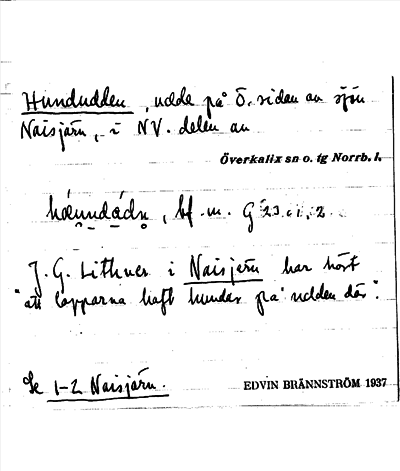 Hundudden, udde på Ö. sidan av sjön
Naisjärv, i NV. delen av
Överkalix sn o. tg Norrb. l.
bf. m. G 23.
J. G. Lithner i Naisjärv har hört
"att lapparna haft hundar på udden där".
Se 1-2 Naisjärv.
EDVIN BRÄNNSTRÖM 1937